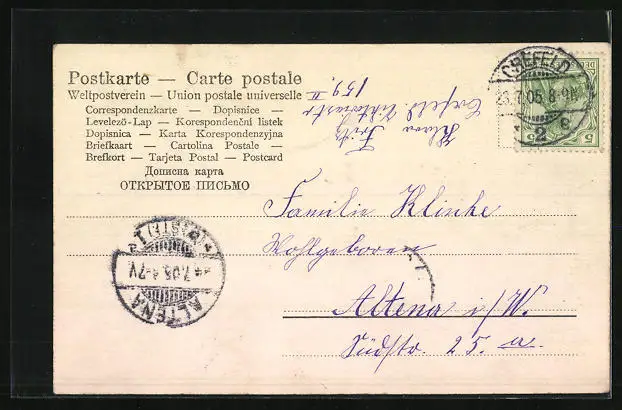 Postkarte — Carte postale
Weltpostverein — Union postale universelle
Correspondenzkarte — Dopisnice —
Levelező-Lap — Korespondenční listek
Dopisnica — Karta Korespondenzyjna
Briefkaart — Cartolina Postale —
Brefkort — Tarjeta Postal — Postcard
Дописна карта
ОТКРЫТОЕ ПИСЬМО
Klara Fritz
Crefeld Viktoriastr
159. II
CREFELD
3.7.05.8-9N
2 e
5 5
Familie Klincke
Wohlgeboren
Altena i/W.
Südstr. 25. a.
(WESTF.)
4.7.05.6-7V
ALTENA